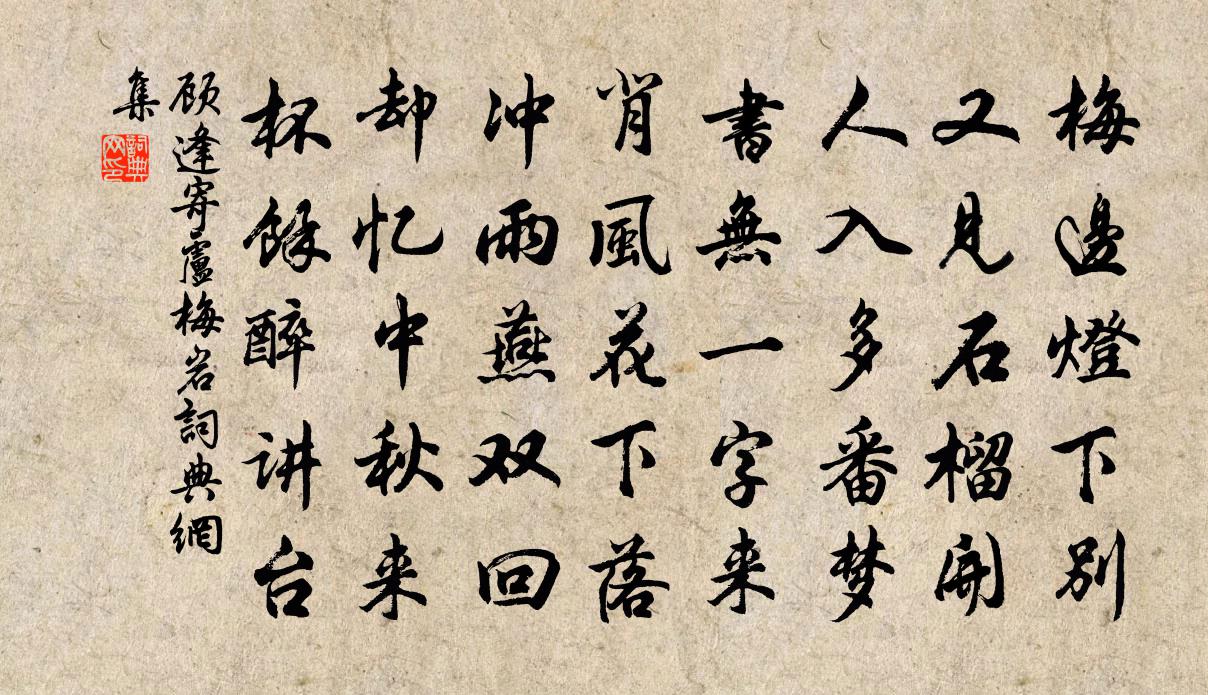 梅邊燈下別
又見石榴開
人入多番梦
書無一字来
背風花下落
冲雨燕双回
却忆中秋来
杯餘醉讲台
顾逢寄盧梅岩詞典網
集
詞典
网印